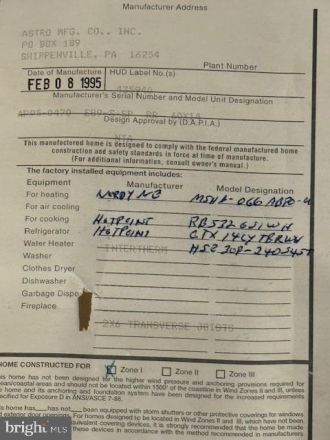 Manufacturer Address
ASTRO MFG. CO., INC.
PO BOX 189
SHIPPENVILLE, PA 16254
Plant Number
Date of Manufacture HUD Label No.(s)
FEB 08 1995
Manufacturer's Serial Number and Model Unit Designation
Design Approval by (D.A.P.I.A.)
NTA
This manufactured home is designed to comply with the federal manufactured home
construction and safety standards in force at time of manufacture.
(For additional information, consult owner's manual.)
The factory installed equipment includes:
Equipment Manufacturer Model Designation
For heating NORDYNE
For air cooling
For cooking HOTPOINT
Refrigerator HOTPOINT
Water Heater INTERTHERM
Washer
Clothes Dryer
Dishwasher
Garbage Dispo
Fireplace
2X6 TRANSVERSE JOISTS
HOME CONSTRUCTED FOR Zone I Zone II Zone III
his home has not been designed for the higher wind pressure and anchoring provisions required for
ean/coastal areas and should not be located within 1500' of the coastline in Wind Zones II and III, unless
e home and its anchoring and foundation system have been designed for the increased requirements
ecified for Exposure D in ANSI/ASCE 7-88.
is home has has not been equipped with storm shutters or other protective coverings for windows
d exterior door openings. For homes designed to be located in Wind Zones II and III, which have not been
equivalent covering devices, it is strongly recommended that the home be made
these devices in accordance with the method recommended in manufacturers
bright MLS